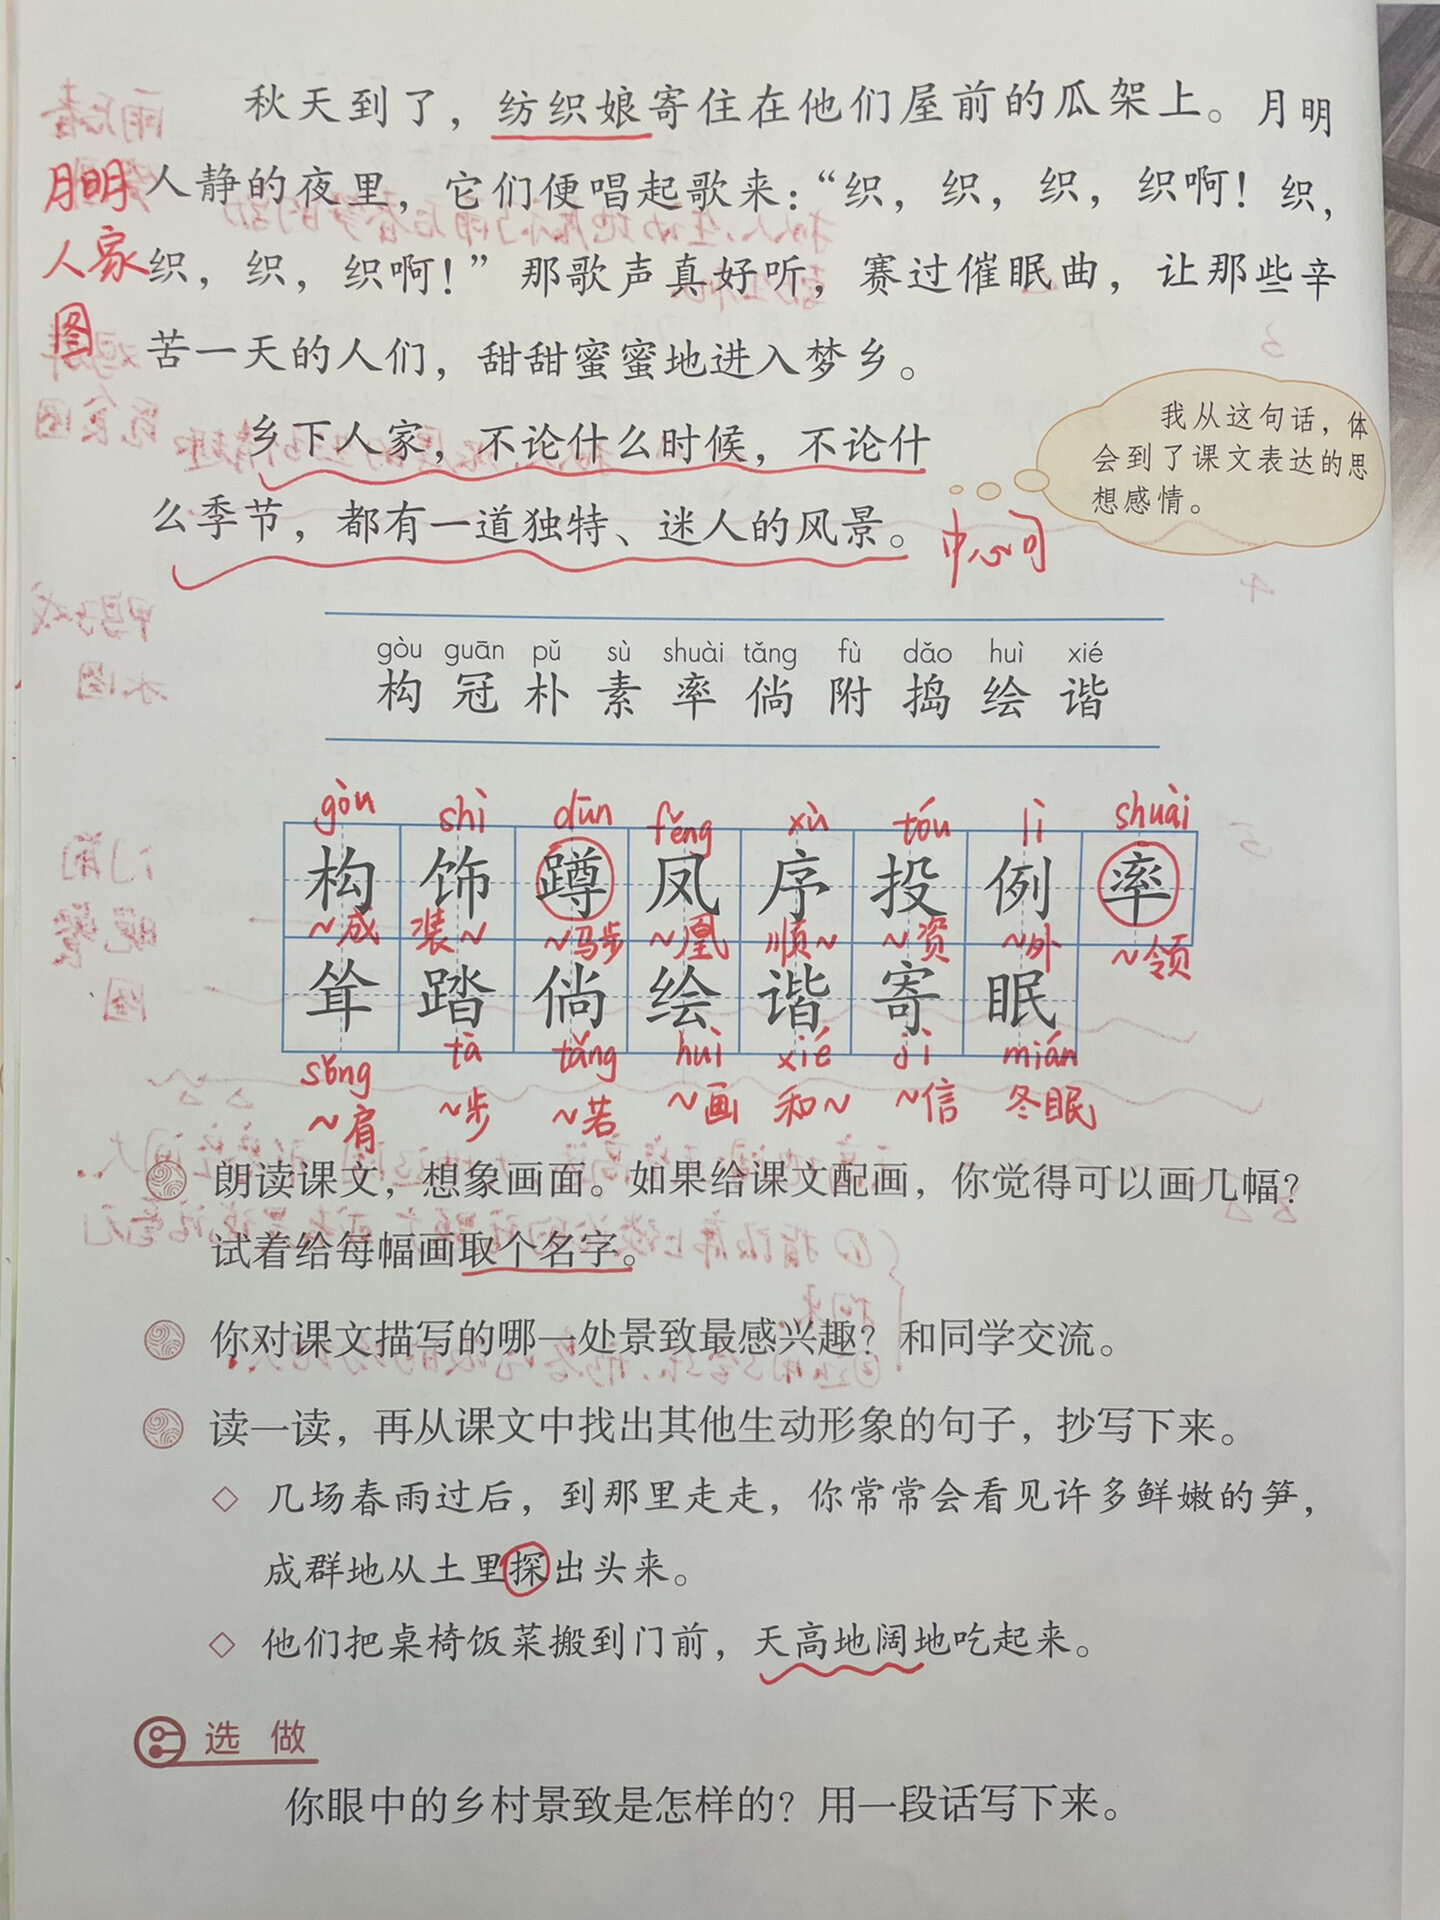 秋天到了，纺织娘寄住在他们屋前的瓜架上。月明
人静的夜里，它们便唱起歌来：“织，织，织，织啊！织，
织，织，织啊！”那歌声真好听，赛过催眠曲，让那些辛
苦一天的人们，甜甜蜜蜜地进入梦乡。
月明
人家
图
乡下人家，不论什么时候，不论什
么季节，都有一道独特、迷人的风景。
中心句
我从这句话，体
会到了课文表达的思
想感情。
gòu guān pǔ sù shuài tǎng fù dǎo huì xié
构 冠 朴 素 率 倘 附 捣 绘 谐
gòu shì dūn fèng xù tóu lì shuài
构 饰 蹲 凤 序 投 例 率
~成 装~ ~马步 ~凰 顺~ ~资 ~外 ~领
耸 踏 倘 绘 谐 寄 眠
sǒng tà tǎng huì xié jì mián
~肩 ~步 ~若 ~画 和~ ~信 冬眠
朗读课文，想象画面。如果给课文配画，你觉得可以画几幅？
试着给每幅画取个名字。
你对课文描写的哪一处景致最感兴趣？和同学交流。
读一读，再从课文中找出其他生动形象的句子，抄写下来。
◇ 几场春雨过后，到那里走走，你常常会看见许多鲜嫩的笋，
成群地从土里探出头来。
◇ 他们把桌椅饭菜搬到门前，天高地阔地吃起来。
选 做
你眼中的乡村景致是怎样的？用一段话写下来。